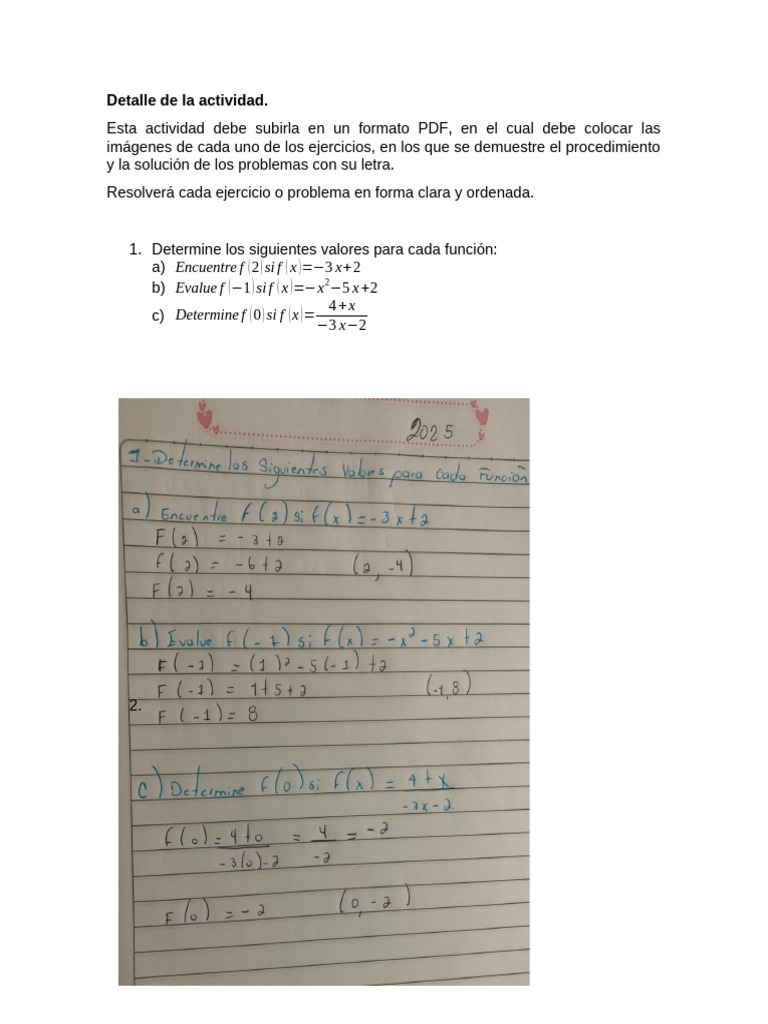 Detalle de la actividad.
Esta actividad debe subirla en un formato PDF, en el cual debe colocar las
imágenes de cada uno de los ejercicios, en los que se demuestre el procedimiento
y la solución de los problemas con su letra.
Resolverá cada ejercicio o problema en forma clara y ordenada.
1. Determine los siguientes valores para cada función:
a) Encuentre f(2) si f(x)=−3x+2
b) Evalue f(−1) si f(x)=−x²−5x+2
c) Determine f(0) si f(x)=
4+x
−3x−2
2025
1-Determine los Siguientes Valores para Cada Función
a) Encuentre f(2) si f(x) = -3x+2
F(2) = -3+2
f(2) = -6+2 (2, -4)
F(2) = -4
b) Evalue f(-1) si f(x) = -x²-5x+2
F(-1) = (1)²-5(-1)+2
F(-1) = 1+5+2 (-1,8)
2.
F(-1) = 8
c) Determine f(0) si f(x) = 4+x
-3x-2
f(0) = 4+0 = 4 = -2
-3(0)-2 -2
F(0) = -2 (0,-2)